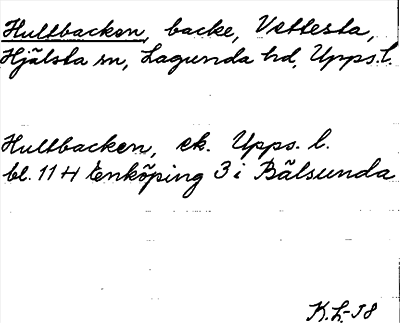 Hultbacken, backe, Vettesta,
Hjälsta sn, Lagunda hd, Upps.l.
Hultbacken, ek. Upps. l.
bl. 11 H Enköping 3 i Bälsunda
K.L-58